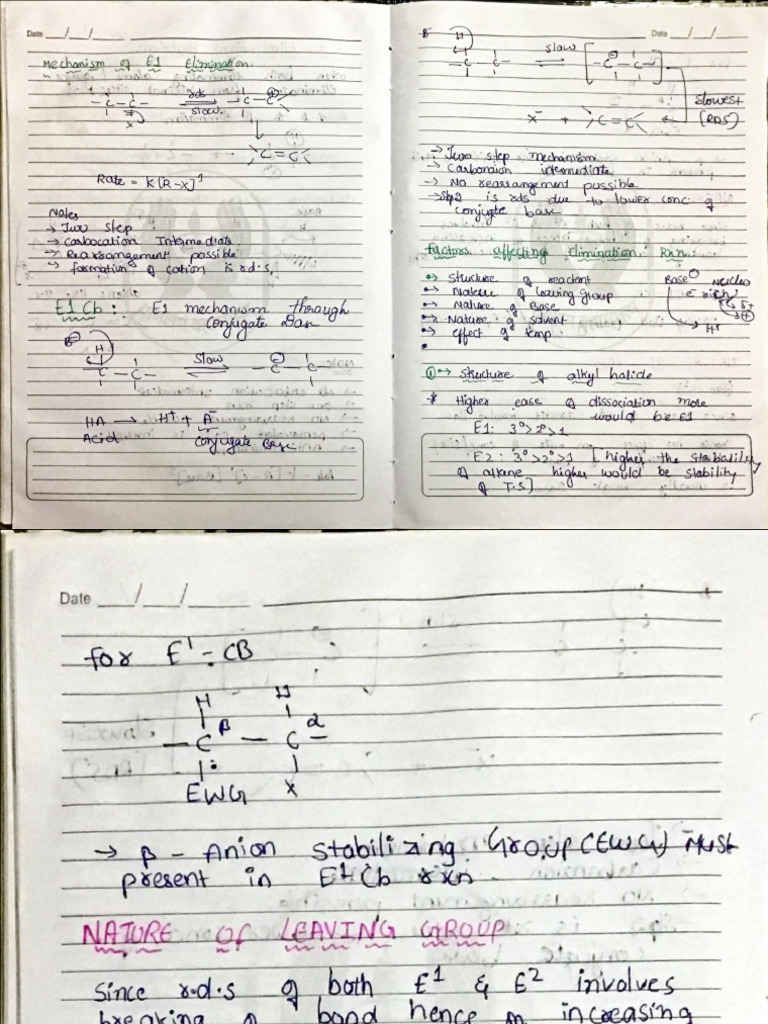 Date __/__/__
Mechanism of E1 Elimination.
-C-C- rds slow. -C-C
X
C=C
Rate = K[R-X]¹
Notes
→ Two step
→ Carbocation Intermediate
→ Rearrangement possible
→ formation of cation is r.d.s,
E1Cb: E1 mechanism through
Conjugate Base
B⊖ H
-C-C- slow -C-C-
HA → H⁺ + A⁻
Acid Conjugate Base
Date __/__/__
B H
-C-C- slow [-C-C-]
slowest
X⁻ + C=C (RDS)
→ Two step mechanism
→ Carbanion intermediate
→ No rearrangement possible
→ Step 2 is rds due to lower conc of
conjugte base
factors affecting Elimination Rxn
Structure of reactant
Nature of leaving group
Nature of Base
Nature of solvent
effect of temp.
Base⊖ Nucleo
e⁻ rich
C δ+
H⁺
① Structure of alkyl halide
* Higher ease of dissociation more
would be E1
E1: 3°>2°>1
E2: 3°>2°>1 [higher the stability
of alkene higher would be stability
of T.S]
Date __/__/__
for E¹-CB
H H
-C β - C α -
EWG X
→ β - Anion stabilizing Group (EWG) Must
present in E1Cb rxn
NATURE OF LEAVING GROUP
Since r.d.s of both E1 & E2 involves
breaking of bond hence on increasing